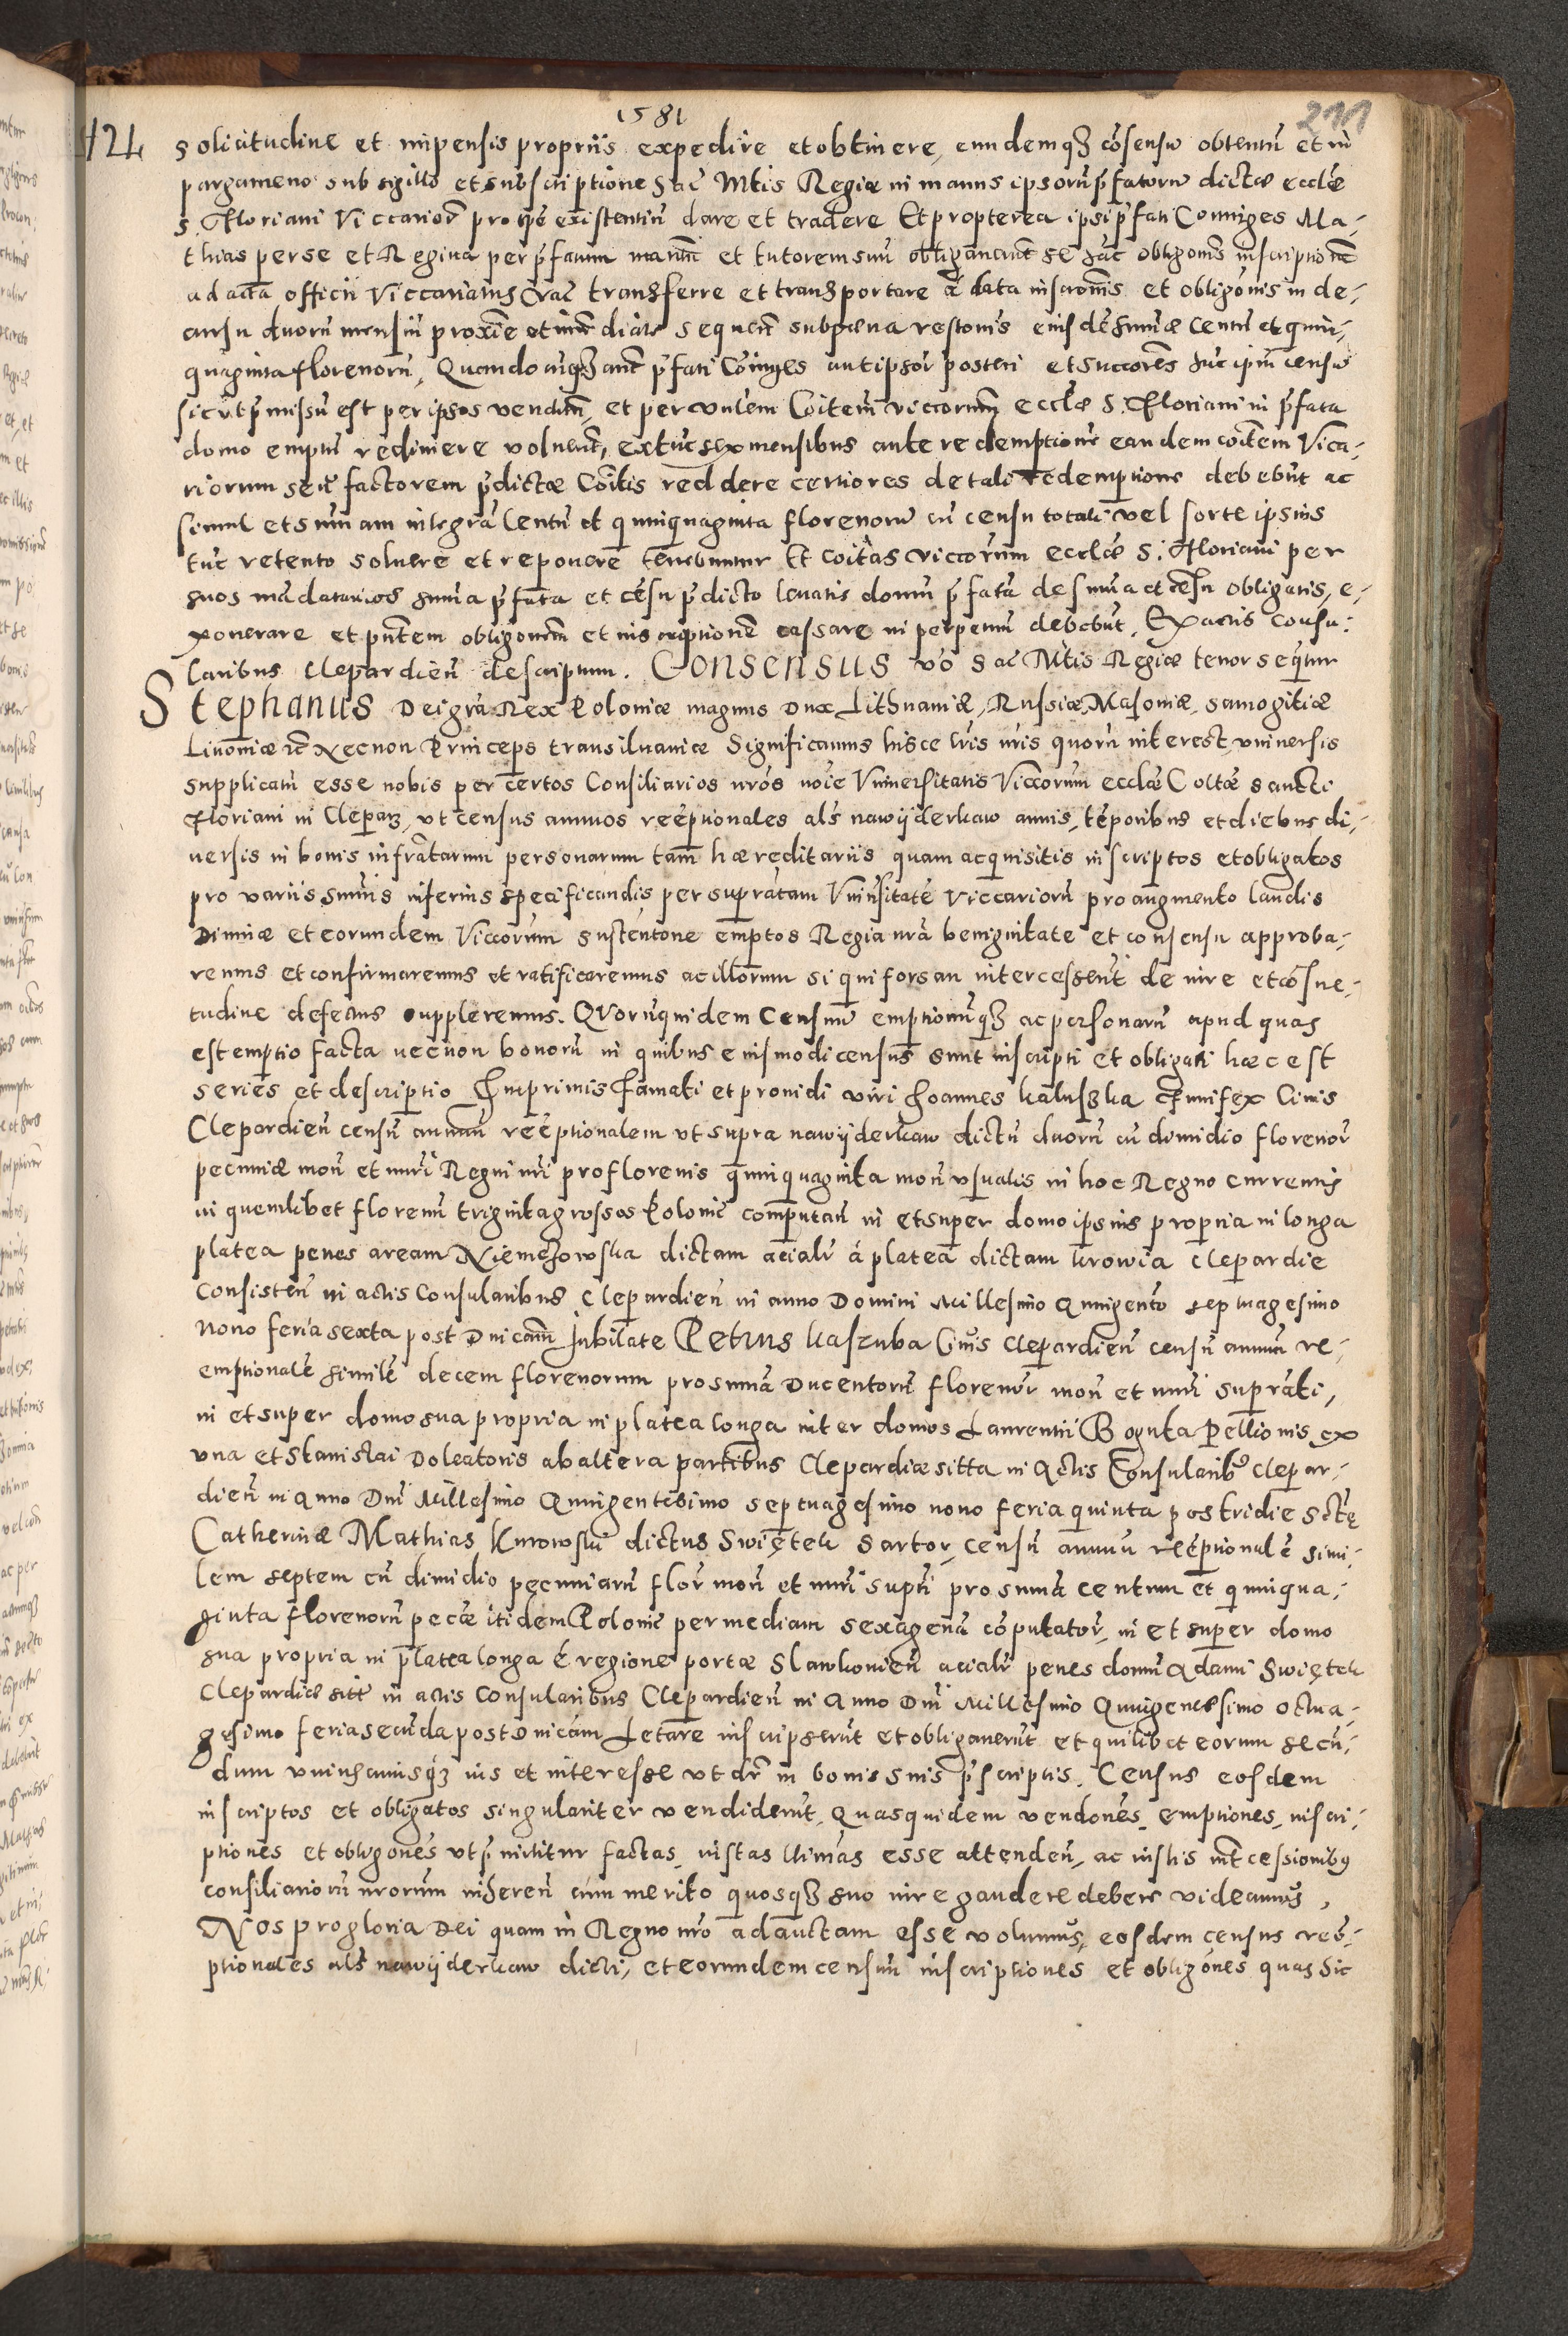 1581
211
424
solicitudine et impensis propriis expedire et obtinere, eundemqȝ cōsensū obtentū et in
pargameno sub sigillo et subscriptione Sac Mtis Regiæ in manus ipsorū p̄fatorū dictæ ecclæ
S. Floriani Viccarior̄ pro tp̄e existentiū dare et tradere Et propterea ipsi p̄fati Coniuges Ma-
thias per se et Regina per p̄fatum maritū et tutorem suū obligauerūt se hāc obligonis inscriptionē
ad acta officii Viccariatus Crac̄ transferre et transportare a data inscronis et obligonis in de-
cursu duorū mensiū proxīe et imediate sequen̄ sub pæna restonis eiusdē sumæ centū et quin-
quaginta florenorū, Quandocūqȝ ant̄ p̄fati Coniuges aut ipsor̄ posteri et succores hūc ipm̄ censū
sicut p̄missū est per ipsos venditū, et per vnīem Coitem viccorum ecclæ S. Floriani in p̄fata
domo emptū redimere voluerīt, extūc sex mensibus ante redemptionē eandem coitem Vica-
riorum seu factorem p̄dictæ Coitis reddere certiores de tali redemptione debebūt ac
simul et sumam integrā centū et quinquaginta florenorū cū censu totali vel sorte ipsius
tūc retento soluere et reponere tenebuntur Et coitas viccorum ecclæ S. Floriani per
suos mādatarios suma p̄fata et cēsu p̄dicto leuatis domū p̄fatā de suma et cēsu obligatis, e-
xonerare et pn̄tem obligonem et inscriptionē cassare in perpetuū debebūt. Ex actis Consu-
laribus Clepardien̄ descriptum. Consensus vo Sac Mtis Regiæ tenor sequitur
Stephanus Dei gra Rex Poloniæ magnus Dux Lithuaniæ, Russiæ, Masouiæ, Samogitiæ
Liuoniæ zc̄ Necnon Princeps transiluaniæ Significamus hisce lris nris quorū interest vniuersis
supplicatū esse nobis per certos Consiliarios nros noīe Vniuersitatis Viccorum ecclæ Coltæ sancti
Floriani in Cleparz, vt census annuos reēptionales als nawyderkaw annis, tēporibus et diebus di-
uersis in bonis infratarum personarum tam hæreditariis quam acquisitis inscriptos et obligatos
pro variis sumis inferius specificandis per supratam Vniūsitatē Viccariorū pro augmento laudis
Diuinæ et eorundem Viccorum sustentone emptos Regia nra benignitate et consensu approba-
remus et confirmaremus et ratificaremus ac illorum si qui forsan intercesserūt de iure et cōsue-
tudine defectus suppleremus. Quorūquidem Censuū emptionūqȝ ac personarū apud quas
est emptio facta necnon bonorū in quibus eiusmodi census sunt inscripti et obligati hæc est
series et descriptio Imprimis famati et prouidi viri Joannes kaluszka funifex Ciuis
Clepardien̄ censū annuū reēptionalem vt supra nawyderkaw dictū duorū cū dimidio florenor̄
pecuniæ mon̄ et nuri Regni nri pro florenis quinquaginta mon̄ vsualis in hoc Regno currentis
in quemlibet florenū triginta grossos Polonic̄ computan̄ in et super domo ipsius propria in longa
platea penes aream Niemczowska dictam acialr̄ á plateā dictam krowia Clepardie
Consisten̄ in actis Consularibus Clepardien̄ in anno Domini Millesimo Quingento septuagesimo
Nono feria sexta post Dnicam Jubilate Petrus kaszuba Ciuis Clepardien̄ censū annuū re-
emptionalē similē decem florenorum pro sumā Ducentorū florenor̄ mon̄ et nuri suprati,
in et super domo sua propria in platea longa inter domos Laurentii Boguta Pellionis ex
vna et Stanislai Doleatoris ab altera partibus Clepardiæ sitta in Actis Consularibꝰ Clepar-
dien̄ in Anno Dni Millesimo Quingentesimo septuagesimo nono feria quinta postridie Sctę
Catherinæ Mathias Kurowski dictus Swiętek Sartor, censū annuū reēptionalē simi-
lem septem cū dimidio pecuniarū flor̄ mon̄ et nuri supti pro sumā centum et quinqua-
ginta florenorū pecæ itidem Polonic̄ per mediam sexagenā cōputator̄, in et super domo
sua propria in platea longa é regione portæ Slawkowien̄ acialr̄ penes domū Adami Swiętek
Clepardiæ sitt̄ in actis Consularibus Clepardien̄ in Anno Dni Millesimo Quingentessimo octua-
gesimo feria secūda post Dnicam Letare inscripserūt et obligauerūt et quilibet eorum secū-
dum vniuscuiusqȝ ius et interesse vt dr̄ in bonis suis p̄scriptis. Census eosdem
inscriptos et obligatos singulariter vendiderūt. Quasquidem vendones, emptiones, inscri-
ptiones et obligones vt p̄mittitur factas, iustas llimas esse attenden̄, ac iustis intcessionibꝰ
consiliariorū nrorum inheren̄ cūm merito quosqȝ suo iure gaudere debere videamus,
Nos pro gloria Dei quam in Regno nro adauctam esse volumus, eosdem census reē-
ptionales als nawyderkaw dicti, et eorundem censuū inscriptiones et obligones quas sic